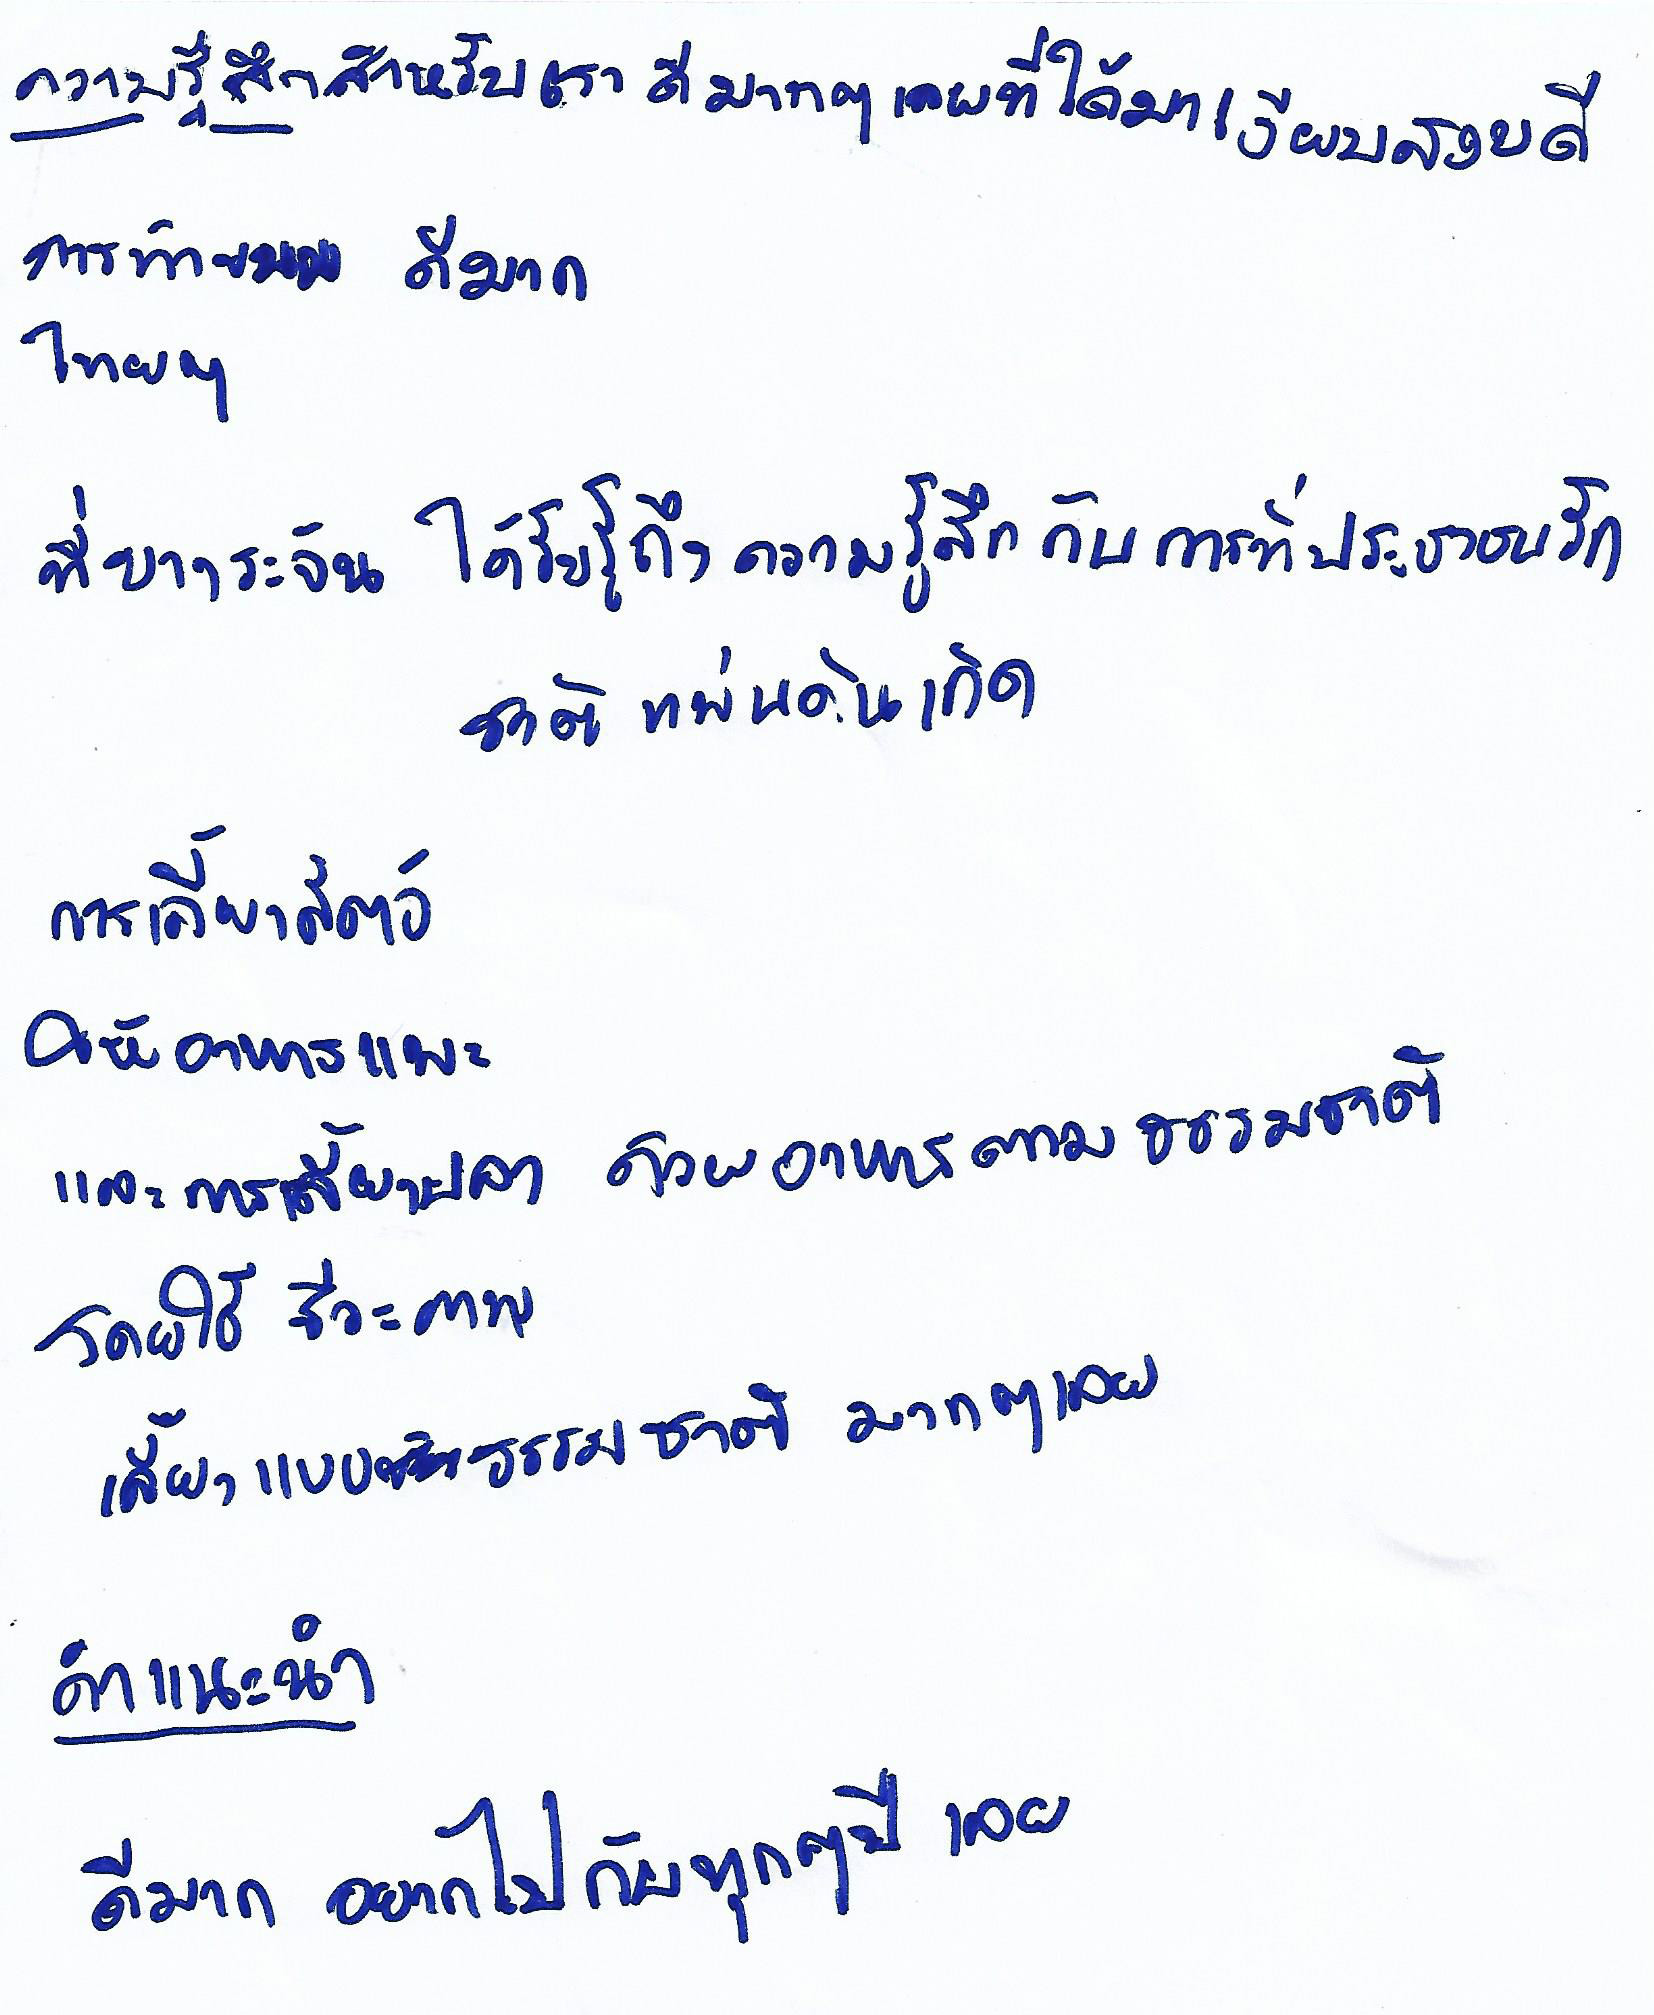 ความรู้สึกสำหรับเรา ดีมากๆ เลยที่ได้มา เงียบสงบดี
การทำขนม ดีมาก
ไทยๆ
ที่บางระจัน ได้รับรู้ถึงความรู้สึก กับการที่ประชาชนรัก
ชาติ แผ่นดินเกิด
การเลี้ยงสัตว์
ให้อาหารแพะ
และการเลี้ยงปลา ด้วยอาหารตามธรรมชาติ
โดยใช้ ชีวะภาพ
เลี้ยงแบบธรรมชาติ มากๆเลย
คำแนะนำ
ดีมาก อยากไปกับทุกๆปี เลย